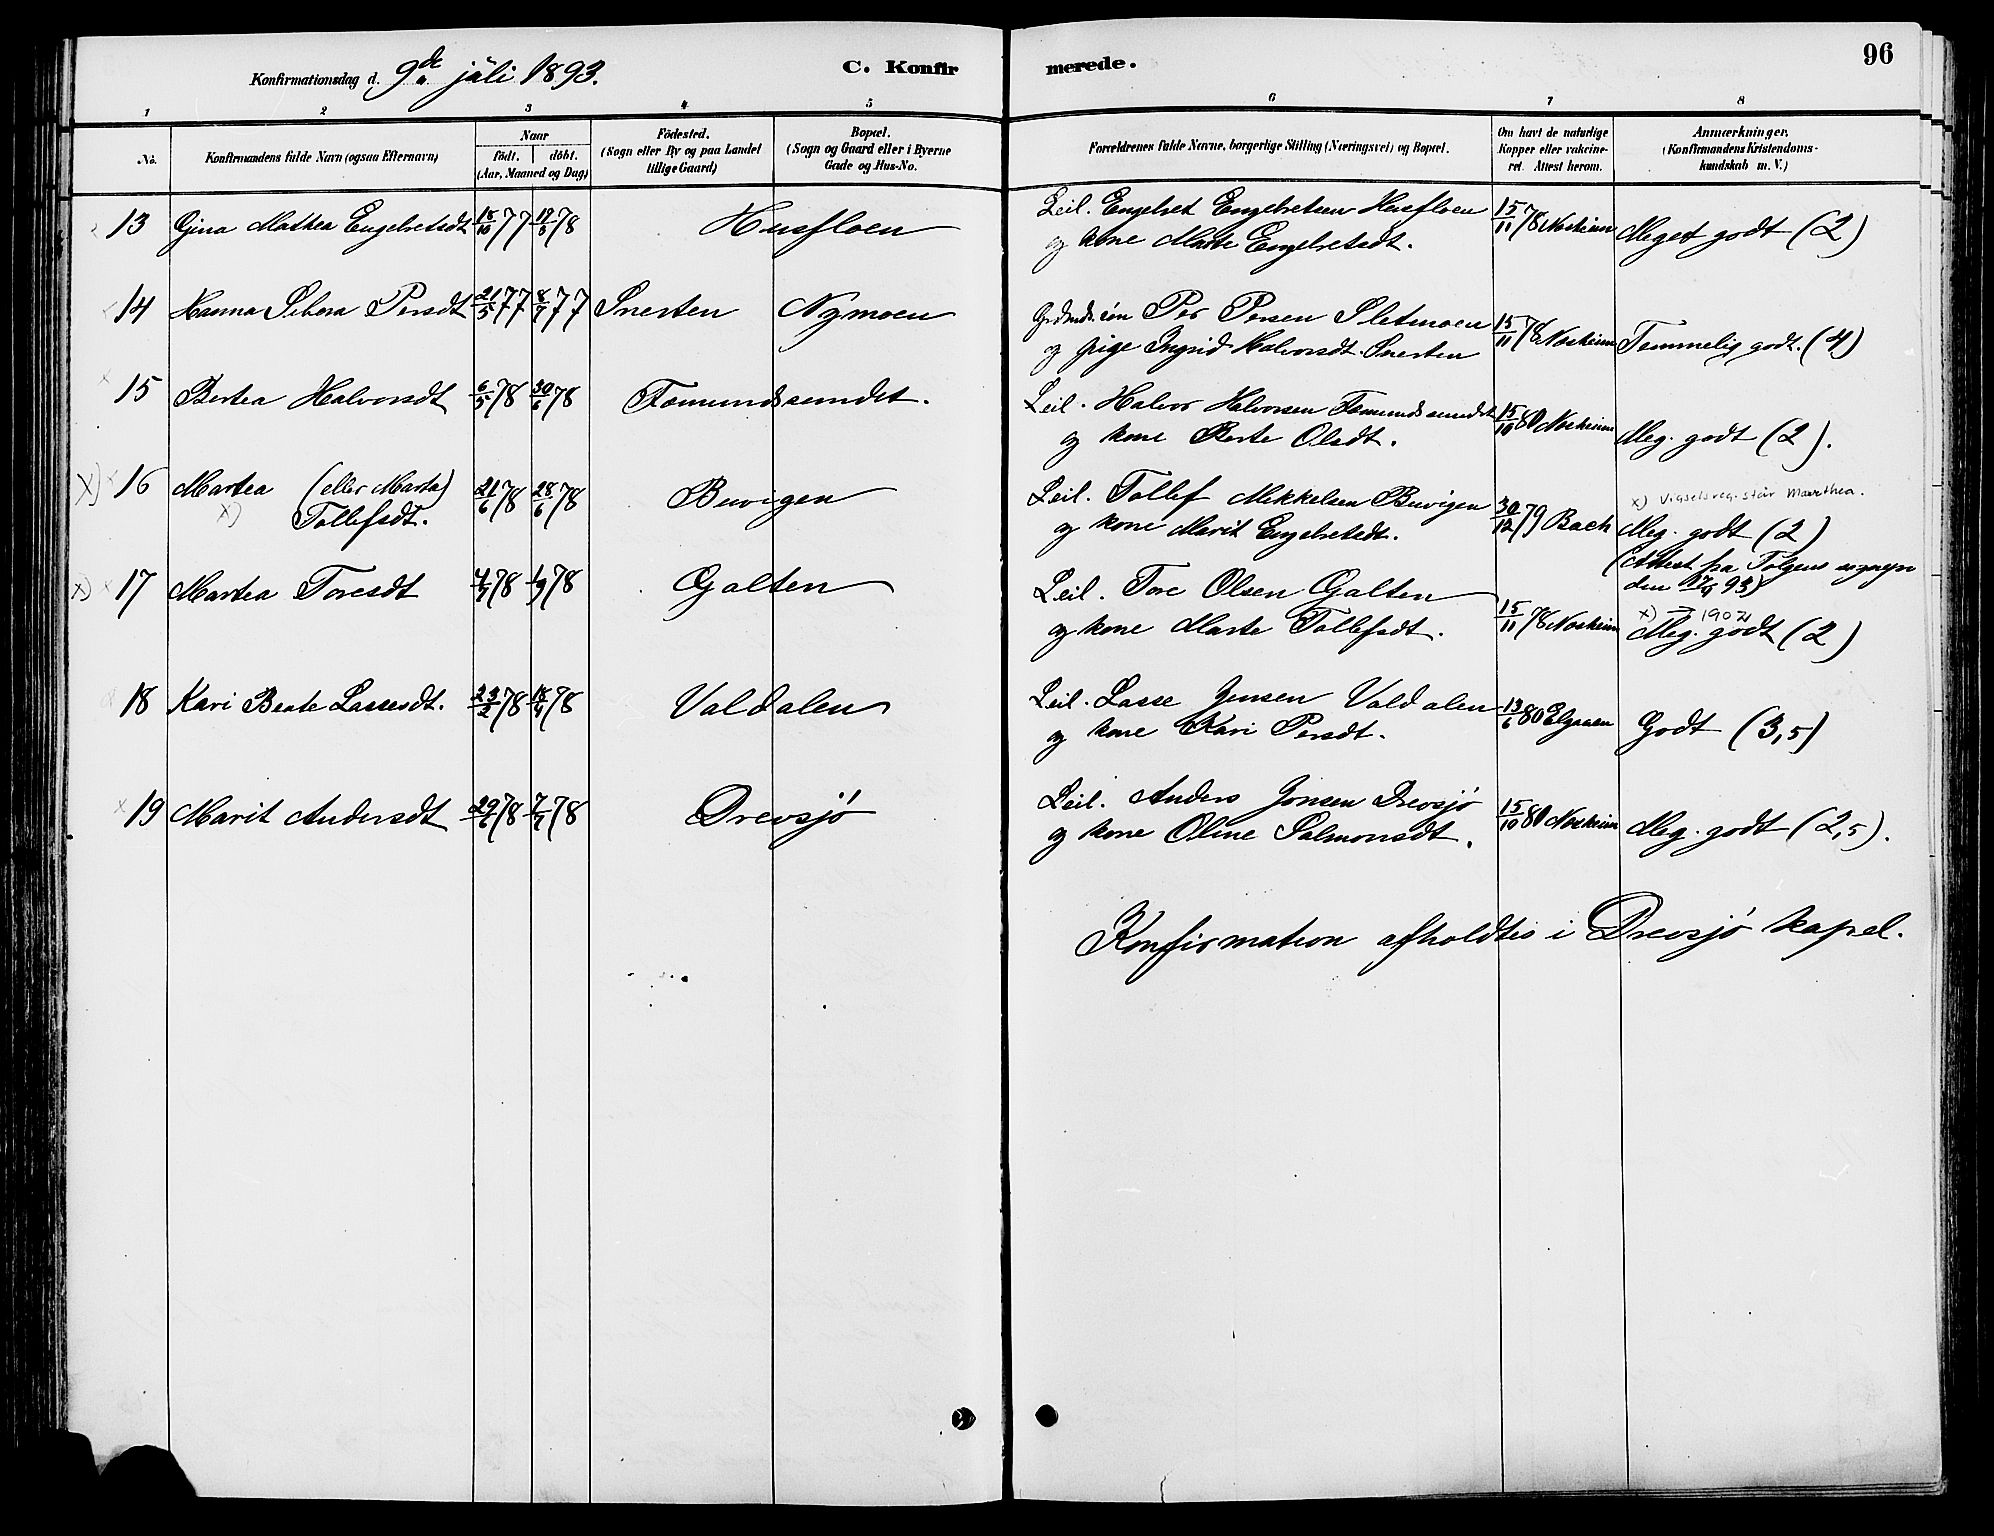 Konfirmationsdag d. 9de juli 1893.
C. Konfir
merede.
96
1 2 3 4 5 6 7 8
No.
Konfirmandens fulde Navn (ogsaa Efternavn)
Naar
födt. döbt.
(Aar, Maaned og Dag)
Födested.
(Sogn eller By og paa Landet
tillige Gaard)
Bopæl.
(Sogn og Gaard eller i Byerne
Gade og Hus-No.
Forældrenes fulde Navne, borgerlige Stilling (Næringsvei) og Bopæl.
Om havt de naturlige
Kopper eller vakcine-
ret. Attest herom.
Anmærkninger.
(Konfirmandens Kristendoms-
kundskab m. V.)
13 Gina Mathea Engebretsdt 18/10 77 19/5 78 Husfloen Leil. Engebret Engebretsen Husfloen 15/11 78 Noskeim Meget godt (2)
og kone Marte Engebretsdt.
14 Hanna Persdt 21/5 77 8/7 77 Snerten Nymoen Grdmds. søn Per Persen Sletmoen 15/11 78 Noskeim Temmelig godt. (4)
og pige Ingrid Halvorsdt. Snerten
15 Bertea Halvorsdt 6/5 78 30/6 78 Fæmundsændet. Leil. Halvor Halvorsen Fæmundsændet 15/10 80 Noskeim Meg. godt (2).
og kone Berte Olsdt.
x) 16 Martea (eller Marta) 21/6 78 28/6 78 Buvigen Leil. Tollef Mikkelsen Buvigen 30/12 79 Bach x) Vigselsreg. står Marthea.
x) Tollefsdt. og kone Marit Engebretsdt. Meg. godt (2)
(Attest fra Tolgens sogn
den 93)
x) 17 Martea Toresdt 4/7 78 1/9 78 Galten Leil. Tore Olsen Galten 15/11 78 Noskeim x) → 1902
og kone Marte Tollefsdt. Meg. godt (2)
18 Kari Beate Lassesdt. 23/2 78 18/4 78 Valdalen Leil. Lasse Jensen Valdalen 13/6 80 Elgaaen Godt (3,5)
og kone Kari Persdt.
19 Marit Andersdt 29/6 78 7/7 78 Drevsjö Leil. Anders Jonsen Drevsjö 15/10 80 Noskeim Meg. godt (2,5).
og kone Oline Salmonsdt.
Konfirmation afholdtes i Drevsjö kapel.